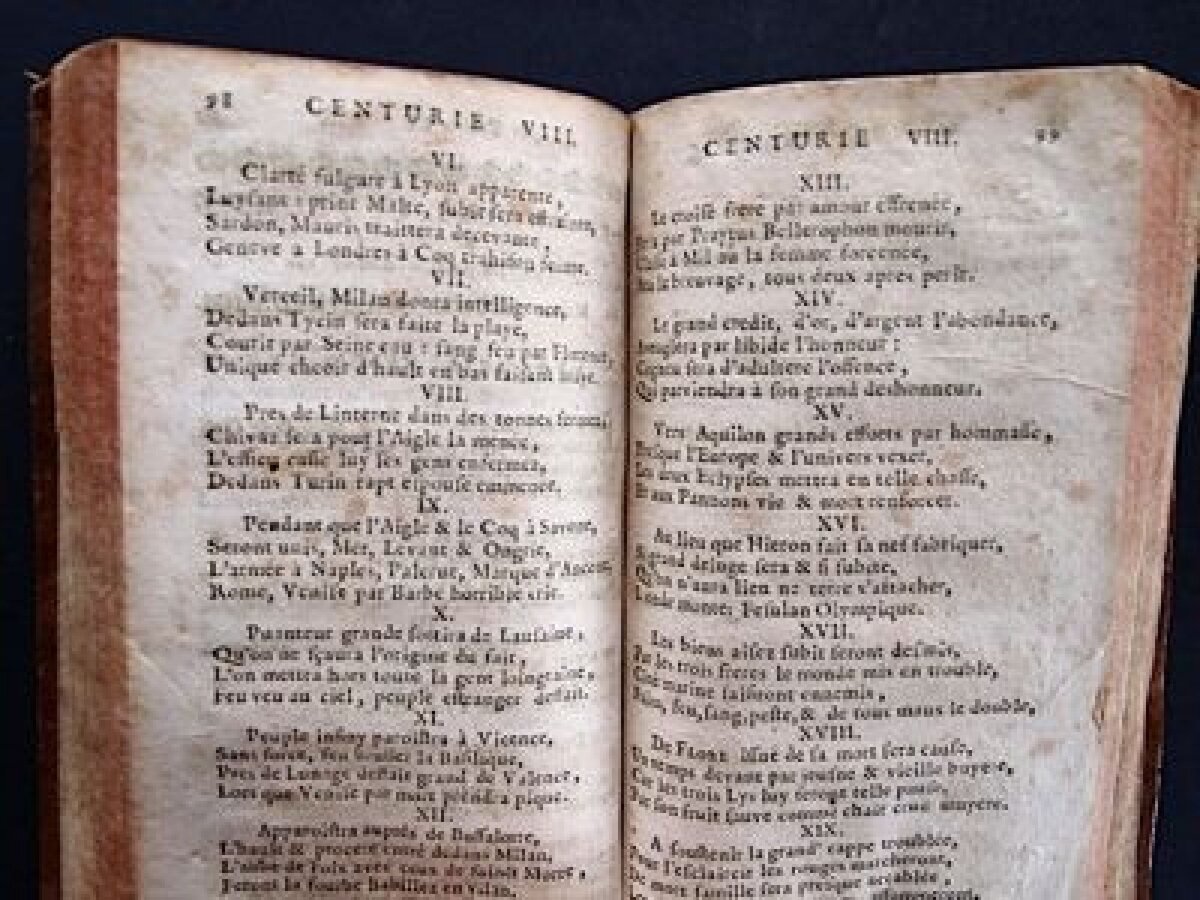 98 CENTURIE VIII.
VI.
Clarté fulgure à Lyon apparente,
Luysant : print Malte, subit sera
Sardon, Mauris traittera decevante,
Geneve à Londres à Coq trahison
VII.
Verceil, Milan donra intelligence,
Dedans Tycin sera faite la playe,
Courir par Seine eau : sang feu par Florence,
Unique cheoir d'hault en bas faisant
VIII.
Pres de Linterne dans des tonnes fermez,
Chivaz fera pour l'Aigle la menée,
L'essieu cassé luy ses gens enfermez,
Dedans Turin rapt espouse emmenée.
IX.
Pendant que l'Aigle & le Coq à Savone,
Seront unis, Mer, Levant & Ongrie,
L'armée à Naples, Palerne, Marque d'Ancone,
Rome, Venise par Barbe horrible crie.
X.
Puanteur grande sortira de Lausanne,
Qu'on ne sçaura l'origine du fait,
L'on mettra hors toute la gent loingtaine,
Feu veu au ciel, peuple estranger deffait.
XI.
Peuple infiny paroistra à Vicence,
Sans force, feu brusler la Basilique,
Pres de Lunage deffait grand de Valence,
Lors que Venise par mort prendra pique.
XII.
Apparoistra aupres de Buffalorre,
L'hault & procere entré dedans Milan,
L'abbe de Foix avec ceux de saint Morre,
Feront la fourbe habillez en vilan.
CENTURIE VIII. 99
XIII.
Le croisé frere par amour effrenée,
par Praytus Bellerophon mourir,
à Mil ans la femme forcenée,
le breuvage, tous deux apres perir.
XIV.
Le grand credit, d'or, d'argent l'abondance,
par libide l'honneur :
sera d'adultere l'offence,
Qui parviendra à son grand deshonneur.
XV.
Vers Aquilon grands efforts par hommasse,
l'Europe & l'univers vexer,
Les deux Eclypses mettra en telle chasse,
Et aux Pannons vie & mort renforcer.
XVI.
Au lieu que Hieron fait sa nef fabriquer,
grand deluge sera & si subite,
Qu'on n'aura lieu ne terre s'attacher,
L'onde monter Fesulan Olympique.
XVII.
Les biens aisez subit seront desmis,
les trois freres le monde mis en trouble,
Cité marine saisiront ennemis,
Faim, feu, sang, peste, & de tous maux le double,
XVIII.
De FLORE issue de sa mort sera cause,
Un temps devant par jeusne & vieille buyere,
Car les trois Lys luy feront telle pause,
Par son fruit sauve comme chair crue muyere.
XIX.
A soustenir la grand' cappe troublée,
Pour l'esclaircir les rouges marcheront,
De mort famille sera presque accablée,